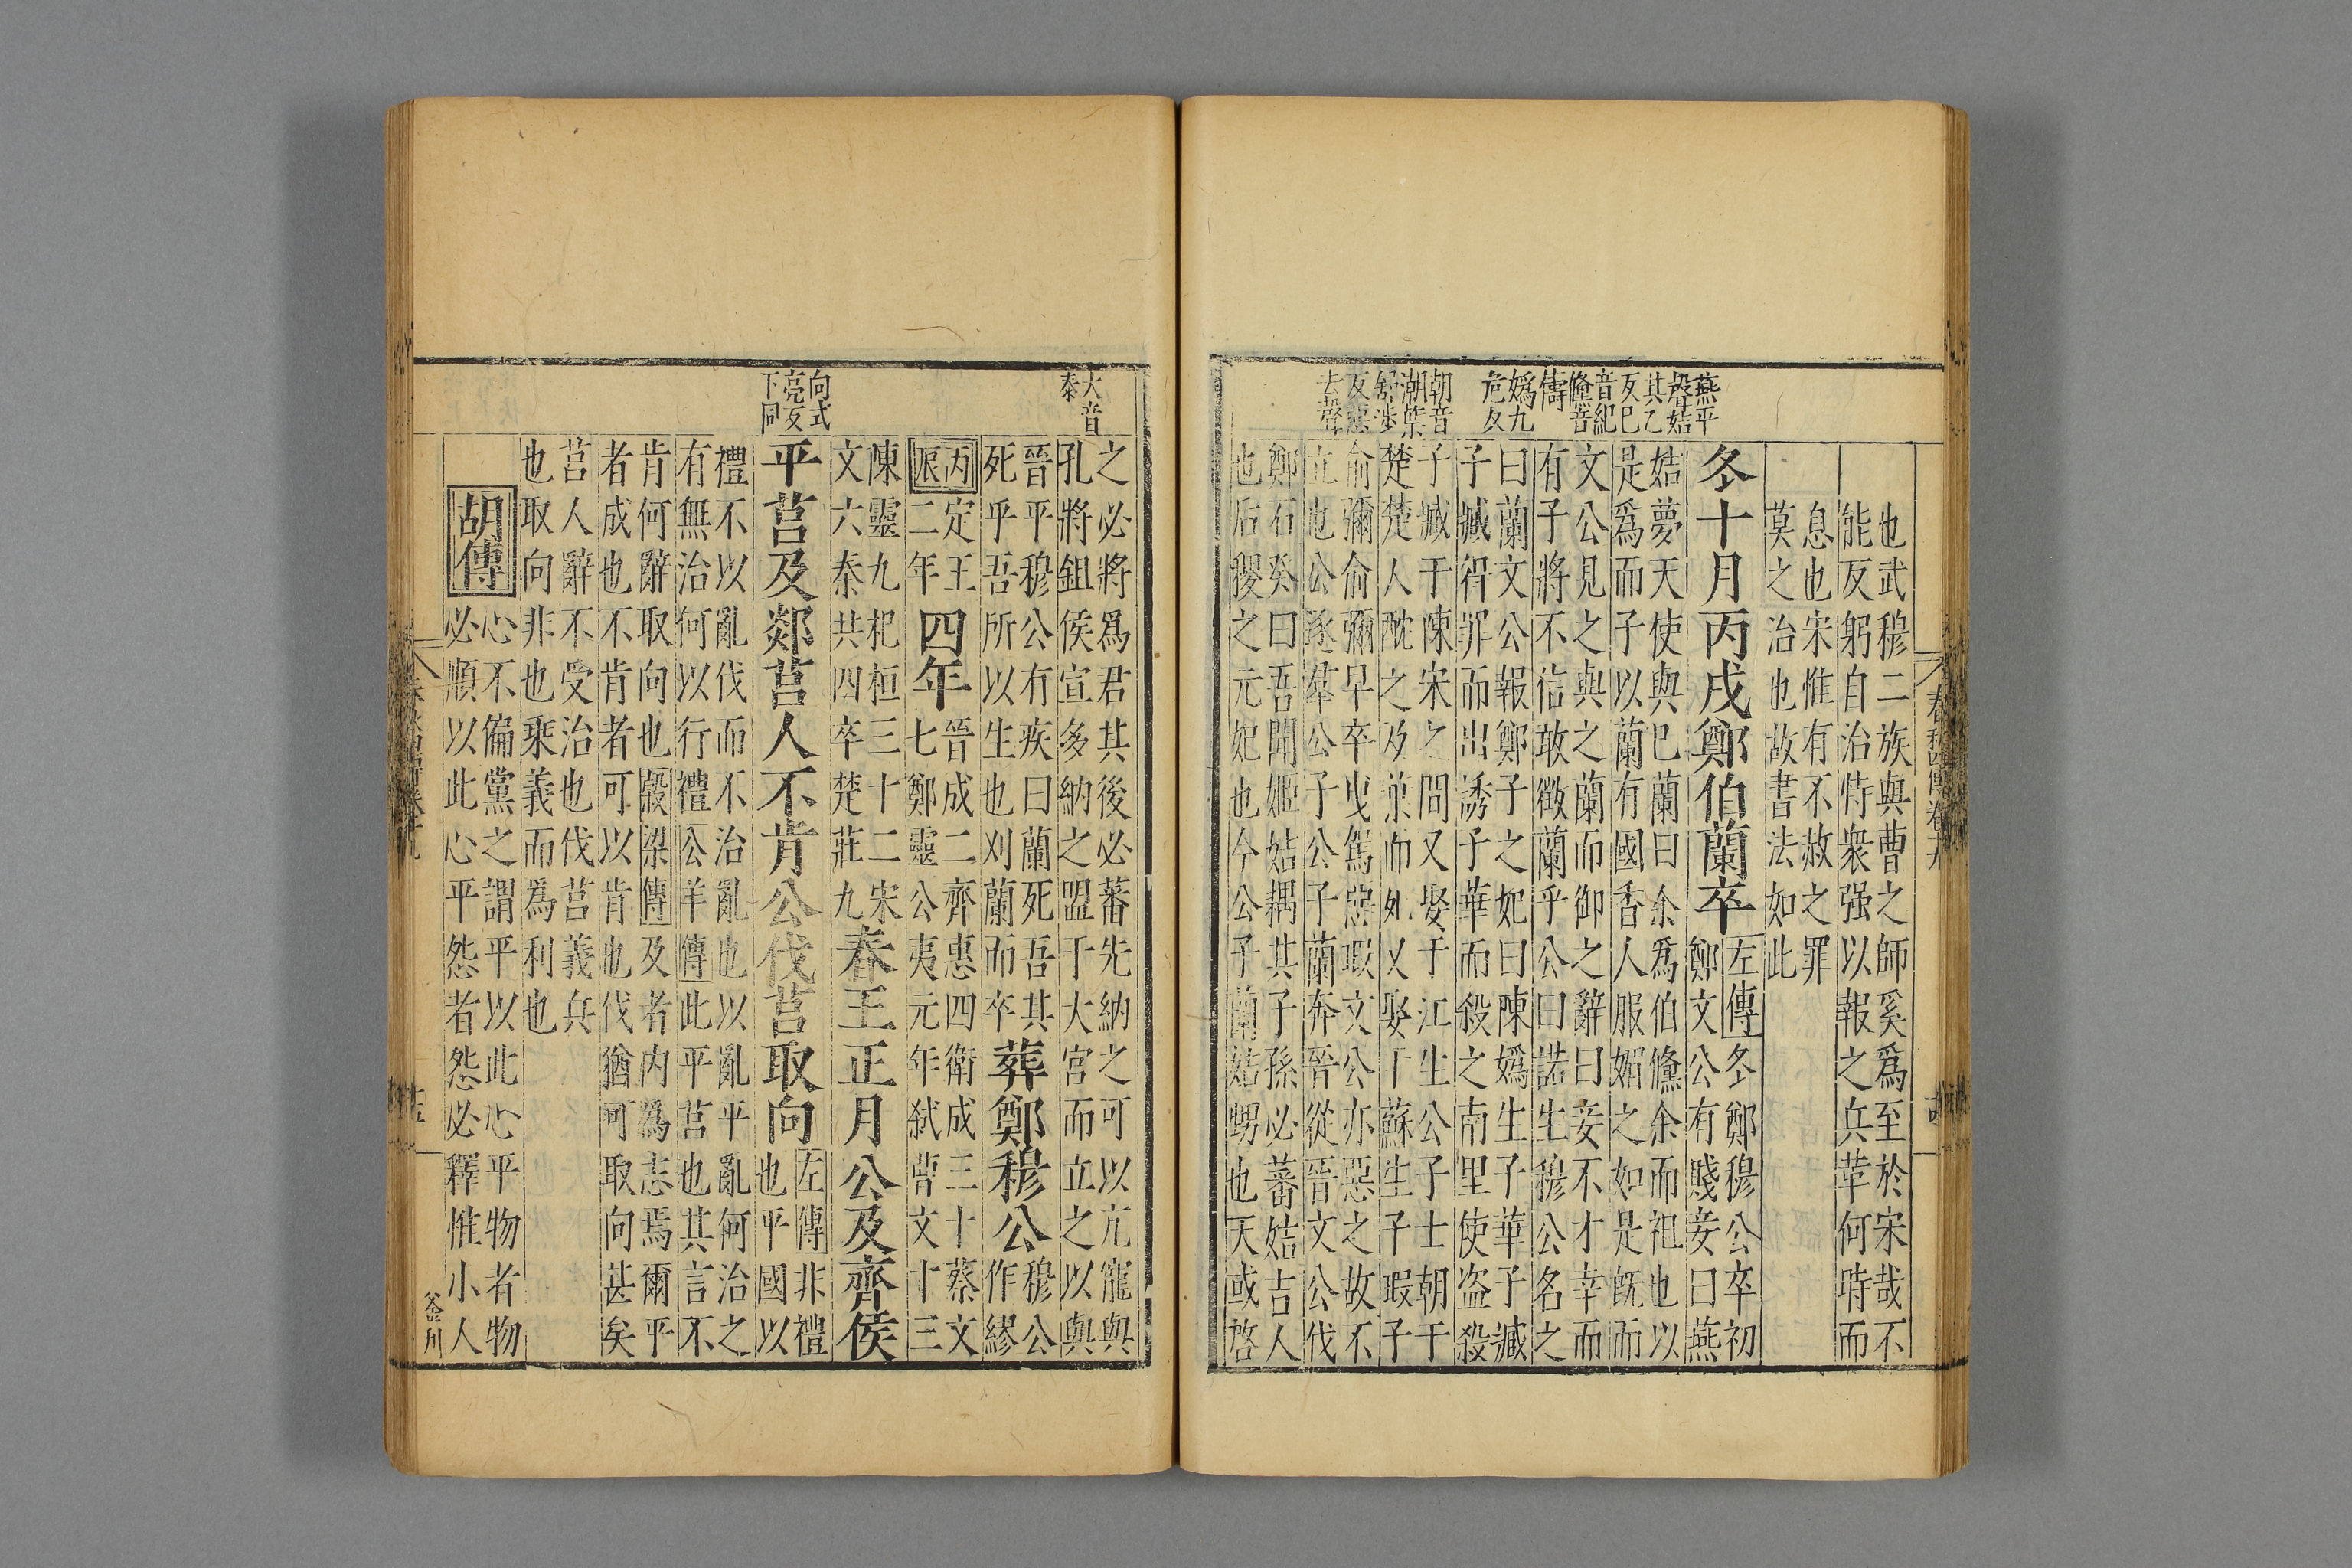 燕平
聲姞
其乙
反巳
音紀
鯈昔
儔
嬀九
危反
朝音
潮葉
舒涉
反惡
去聲
也武穆二族與曹之師奚爲至於宋哉不
能反躬自治恃衆强以報之兵革何時而
息也宋惟有不赦之罪
莫之治也故書法如此
冬十月丙戌鄭伯蘭卒
左傳冬鄭穆公卒初
鄭文公有賤妾曰燕
姞夢天使與巳蘭曰余爲伯鯈余而祖也以
是爲而子以蘭有國香人服媚之如是旣而
文公見之與之蘭而御之辭曰妾不才幸而
有子將不信敢徵蘭乎公曰諾生穆公名之
曰蘭文公報鄭子之妃曰陳嬀生子華子臧
子臧得罪而出誘子華而殺之南里使盗殺
子臧于陳宋之間又娶于江生公子士朝于
楚楚人酖之及葉而死又娶于蘇生子瑕子
俞彌俞彌早卒洩駕惡瑕文公亦惡之故不
立也公逐羣公子公子蘭奔晉從晉文公伐
鄭石癸曰吾聞姬姞耦其子孫必蕃姞吉人
也后稷之元妃也今公子蘭姞甥也天或啓
春秋四傳卷十九
大音
泰
向式
亮反
下同
之必將爲君其後必蕃先納之可以亢寵與
孔將鉏侯宣多納之盟于大宮而立之以與
晉平穆公有疾曰蘭死吾其
死乎吾所以生也刈蘭而卒
葬鄭穆公
穆公
作繆
丙
辰
定王
二年
四年
晉成二齊惠四衛成三十蔡文
七鄭靈公夷元年弒曹文十三
陳靈九杞桓三十二宋
文六秦共四卒楚莊九
春王正月公及齊侯
平莒及郯莒人不肯公伐莒取向
左傳非禮
也平國以
禮不以亂伐而不治亂也以亂平亂何治之
有無治何以行禮公羊傳此平莒也其言不
肯何辭取向也穀梁傳及者内爲志焉爾平
者成也不肯者可以肯也伐猶可取向甚矣
莒人辭不受治也伐莒義兵
也取向非也乘義而爲利也
胡傳
心不偏黨之謂平以此心平物者物
必順以此心平怨者怨必釋惟小人